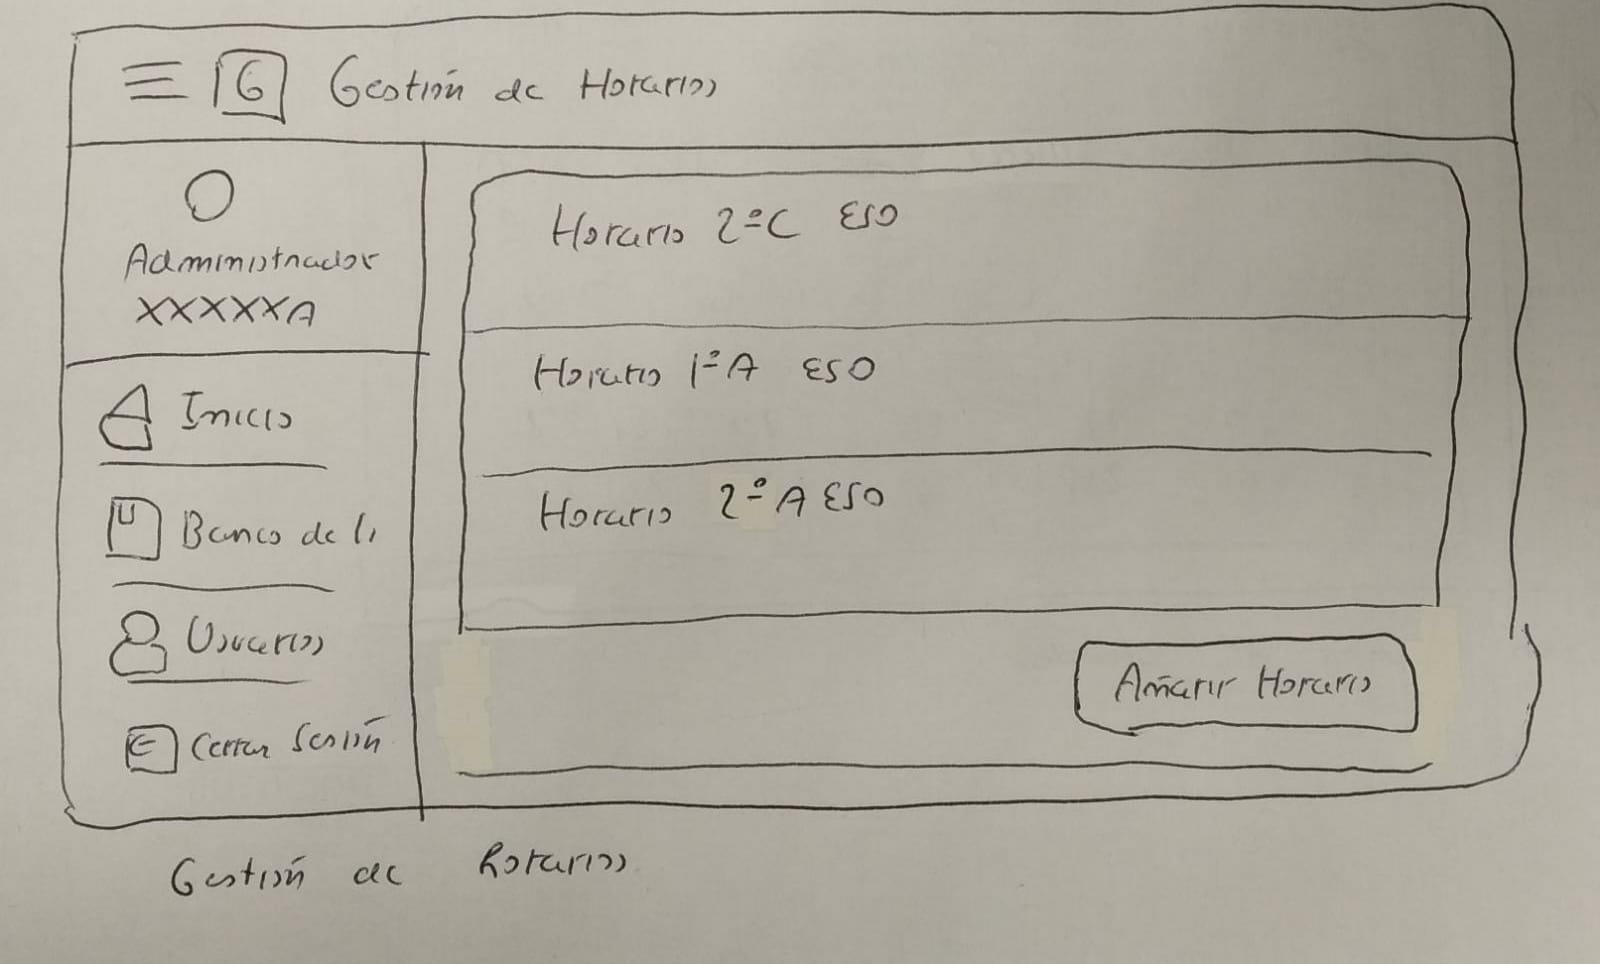 G Gestión de Horarios
Administrador
XXXXXA
Inicio
Banco de li
Usuarios
Cerrar Sesión
Horario 2ºC ESO
Horario 1ºA ESO
Horario 2ºA ESO
Añarir Horario
Gestión de horarios